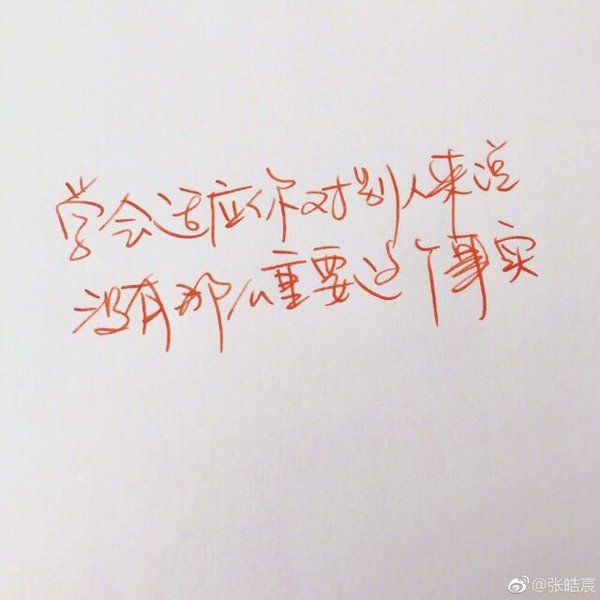 学会适应你对别人来说
没有那么重要这个事实
@张皓宸